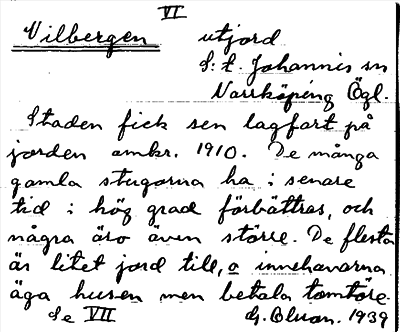 VI
Vilbergen utjord
S:t Johannis sn
Norrköping Ögl.
Staden fick sen lagfart på
jorden omkr. 1910. De många
gamla stugorna ha i senare
tid i hög grad förbättras, och
några äro även större. De flesta
är litet jord till, o innehavarna
äga husen men betala tomtöre.
Se VII G. Olson. 1939